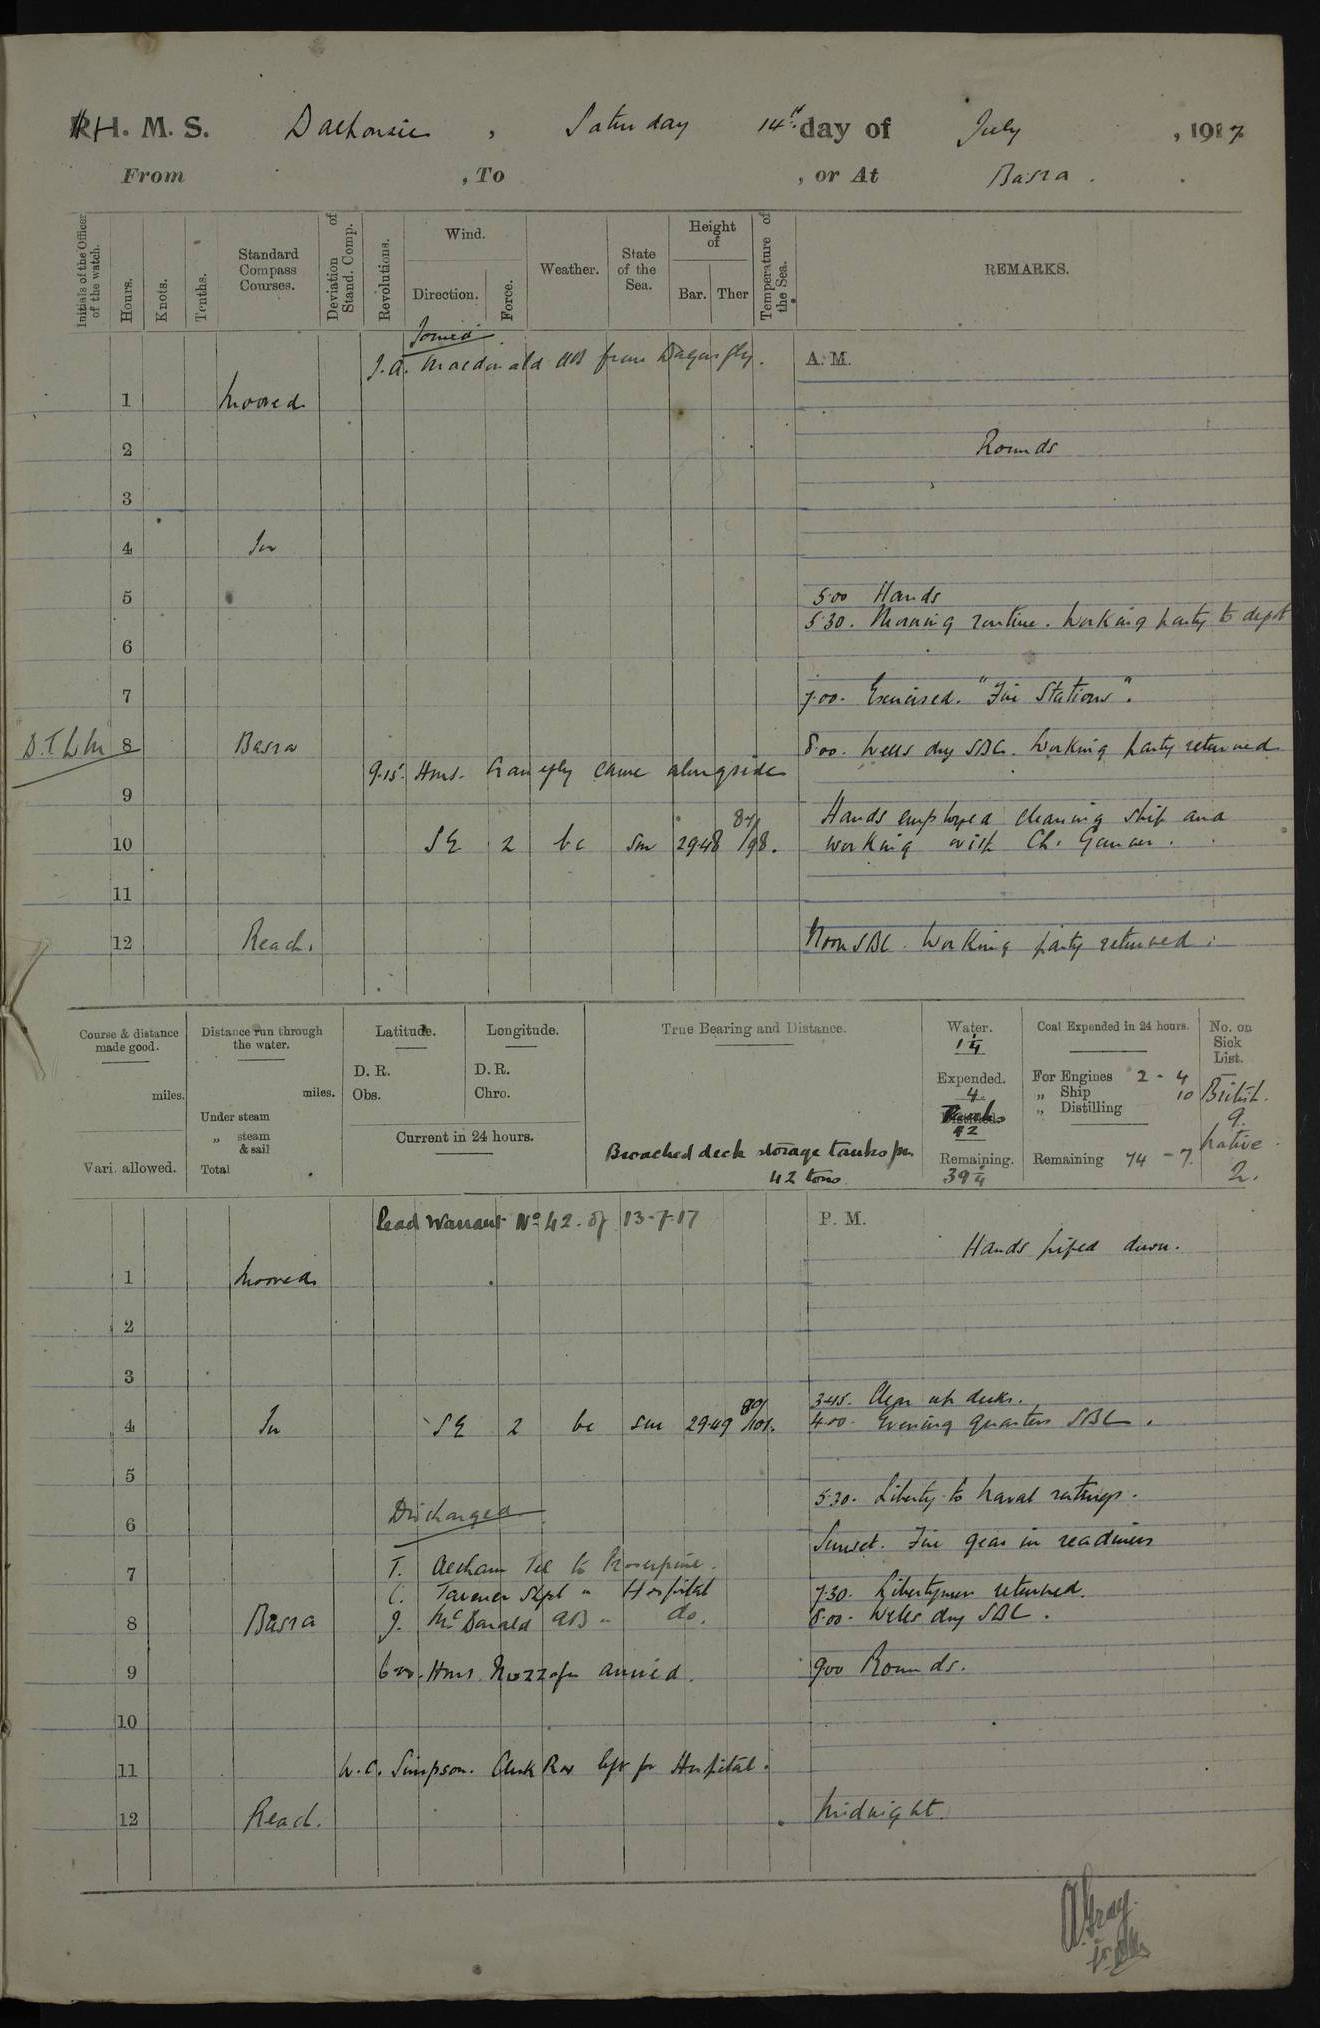 H. M. S. Dalhousie, Saturday 14th day of July, 1917
From , To , or At Basra.
Initials of the Officer of the watch.
Hours.
Knots.
Tenths.
Standard Compass Courses.
Deviation of Stand. Comp.
Revolutions.
Wind.
Direction.
Force.
Weather.
State of the Sea.
Height of
Bar.
Ther
Temperature of the Sea.
REMARKS.
Joined
J. A. Macdonald AB from Dragonfly.
A. M.
1 Moored
2 Rounds
3
4 In
5 5.00 Hands
5.30. Morning routine. Working party to depot
6
7 7.00. Exercised. "Fire Stations".
8 Basra 8.00. Wells dry SBC. Working party returned
9.15. HMS. Crane fly came alongside
9
Hands employed cleaning ship and
10 SE 2 bc sm 29.48 87/98. working with Ch. Gunner.
11
12 Reach. Noon SBC. Working party returned.
Course & distance made good.
miles.
Vari. allowed.
Distance run through the water.
miles.
Under steam
„ steam & sail
Total
Latitude.
D. R.
Obs.
Longitude.
D. R.
Chro.
Current in 24 hours.
True Bearing and Distance.
Broached deck storage tanks for
42 tons
Water.
1¼
Expended.
4
42
Remaining.
39¼
Coal Expended in 24 hours.
For Engines 2 - 4
„ Ship 10
„ Distilling
Remaining 74 - 7.
No. on Sick List.
British.
9.
Native
2.
Read Warrant No 42. of 13-7-17
P. M.
Hands piped down.
1 Moored
2
3
3.45. Clear up decks.
4 In SE 2 bc sm 29.49 89/101. 4.00. Evening quarters SBC.
5
5.30. Liberty to Naval ratings.
Discharged
6
Sunset. Fire gear in readiness
T. Tel to Proserpine.
7
C. Taverner " Hospital
7.30. Libertymen returned.
8 Basra J. McDonald AB " do. 8.00. Wells dry SBC.
9 6.00. HMS. Muzzafer arrived. 9.00 Rounds.
10
11 W. C. Simpson. Clerk RNR left for Hospital.
12 Reach. Midnight.
A. Gray